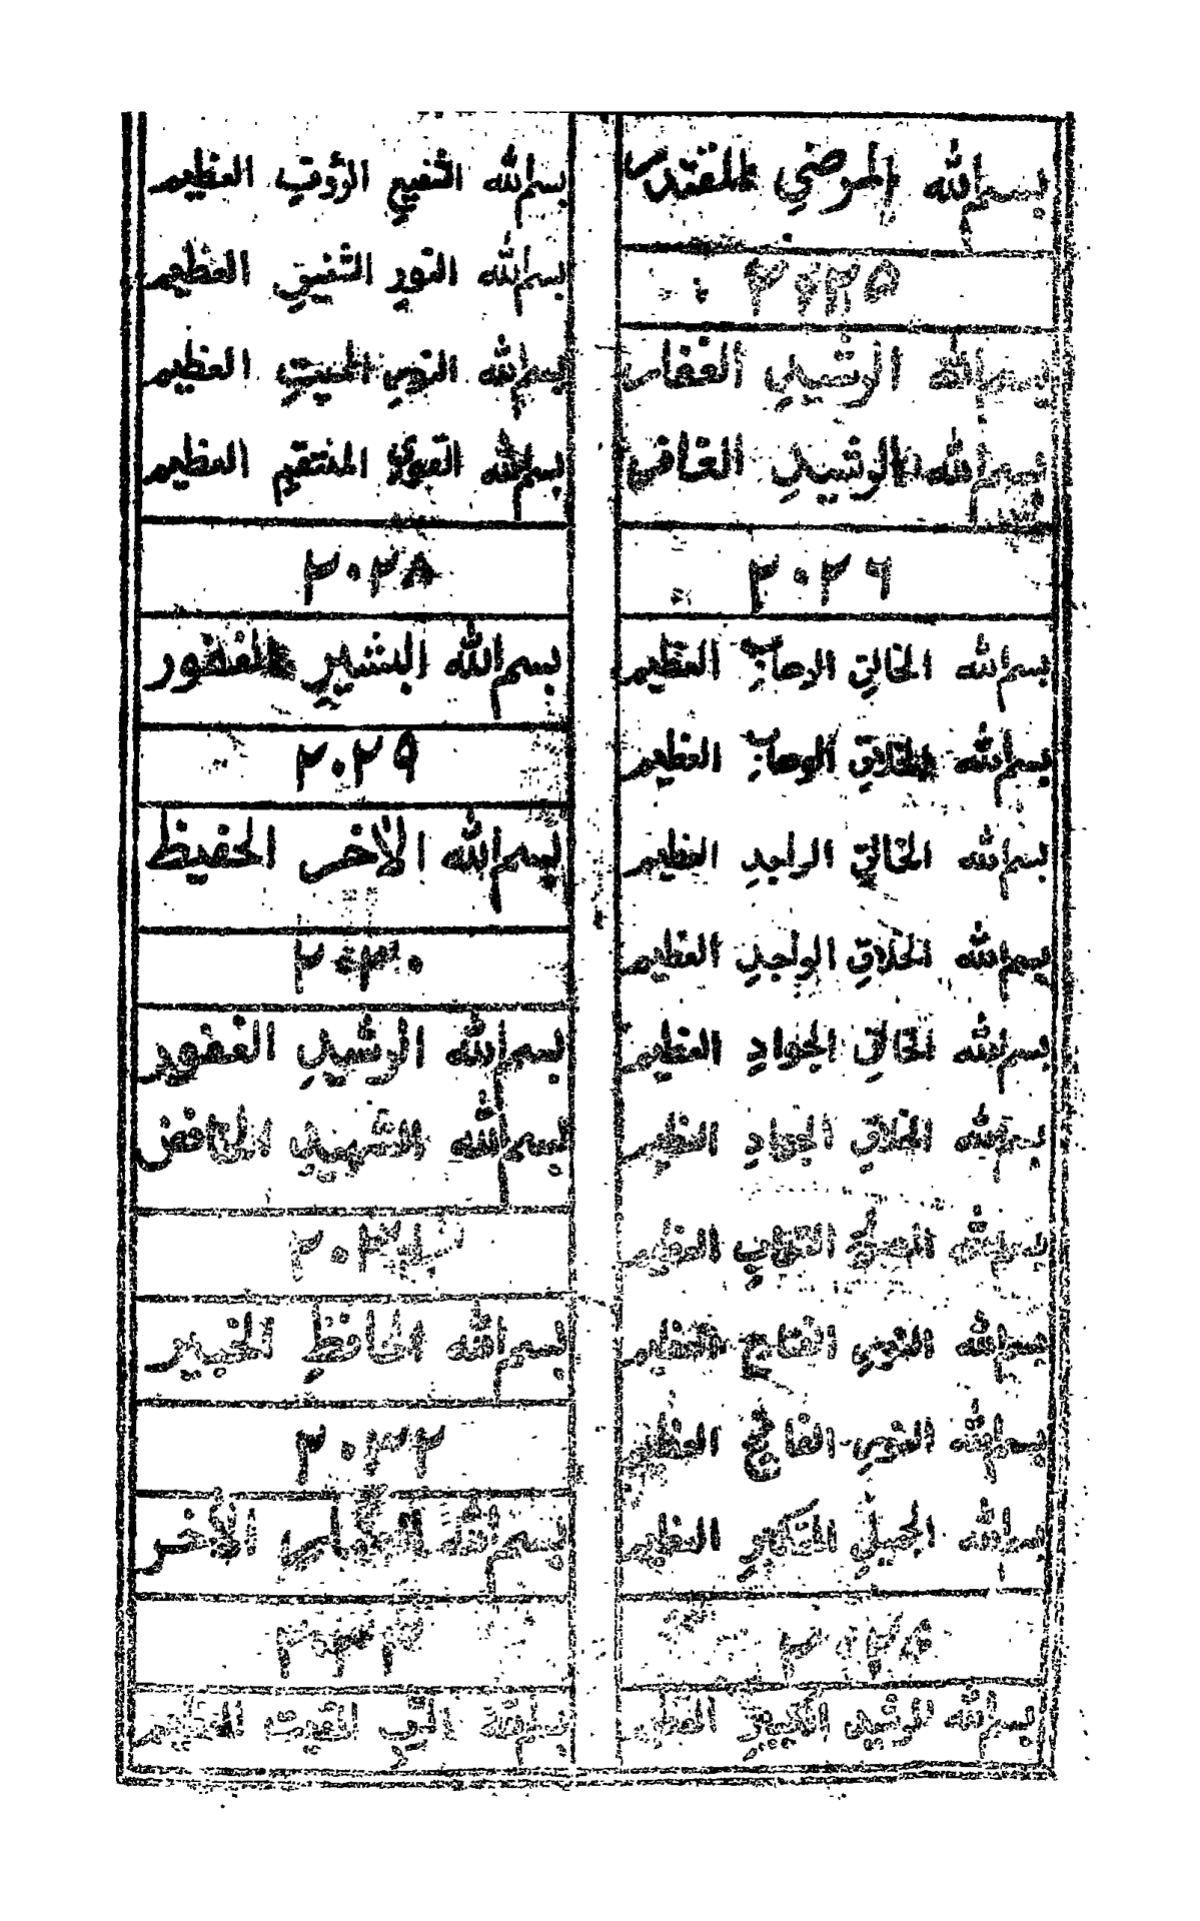 بسم الله المرضي المقتدر
۲۰۲۵
بسم الله الرشيد الغفار
بسم الله الرشيد الغافر
۲۰۲۶
بسم الله الخالق الوهاب العظيم
بسم الله الخلاق الوهاب العظيم
بسم الله الخالق الواجد العظيم
بسم الله الخلاق الواجد العظيم
بسم الله الخالق الجواد العظيم
بسم الله الخلاق الجواد العظيم
بسم الله العظيم
بسم الله النور الفتاح العظيم
بسم الله النور الفاتح العظيم
بسم الله الجميل المتكبر العظيم
بسم الله الرشيد الكبير العظيم
بسم الله الشفيع الرؤف العظيم
بسم الله النور الشفيق العظيم
بسم الله النور العظيم
بسم الله القوي المنتقم العظيم
۲۰۲۸
بسم الله البشير الغفور
۲۰۲۹
بسم الله الآخر الحفيظ
۲۰۳۰
بسم الله الرشيد الغفور
بسم الله الشهيد الخافض
۲۰۳۱
بسم الله الحافظ الخبير
۲۰۳۲
بسم الله الآخر
بسم الله العظيم